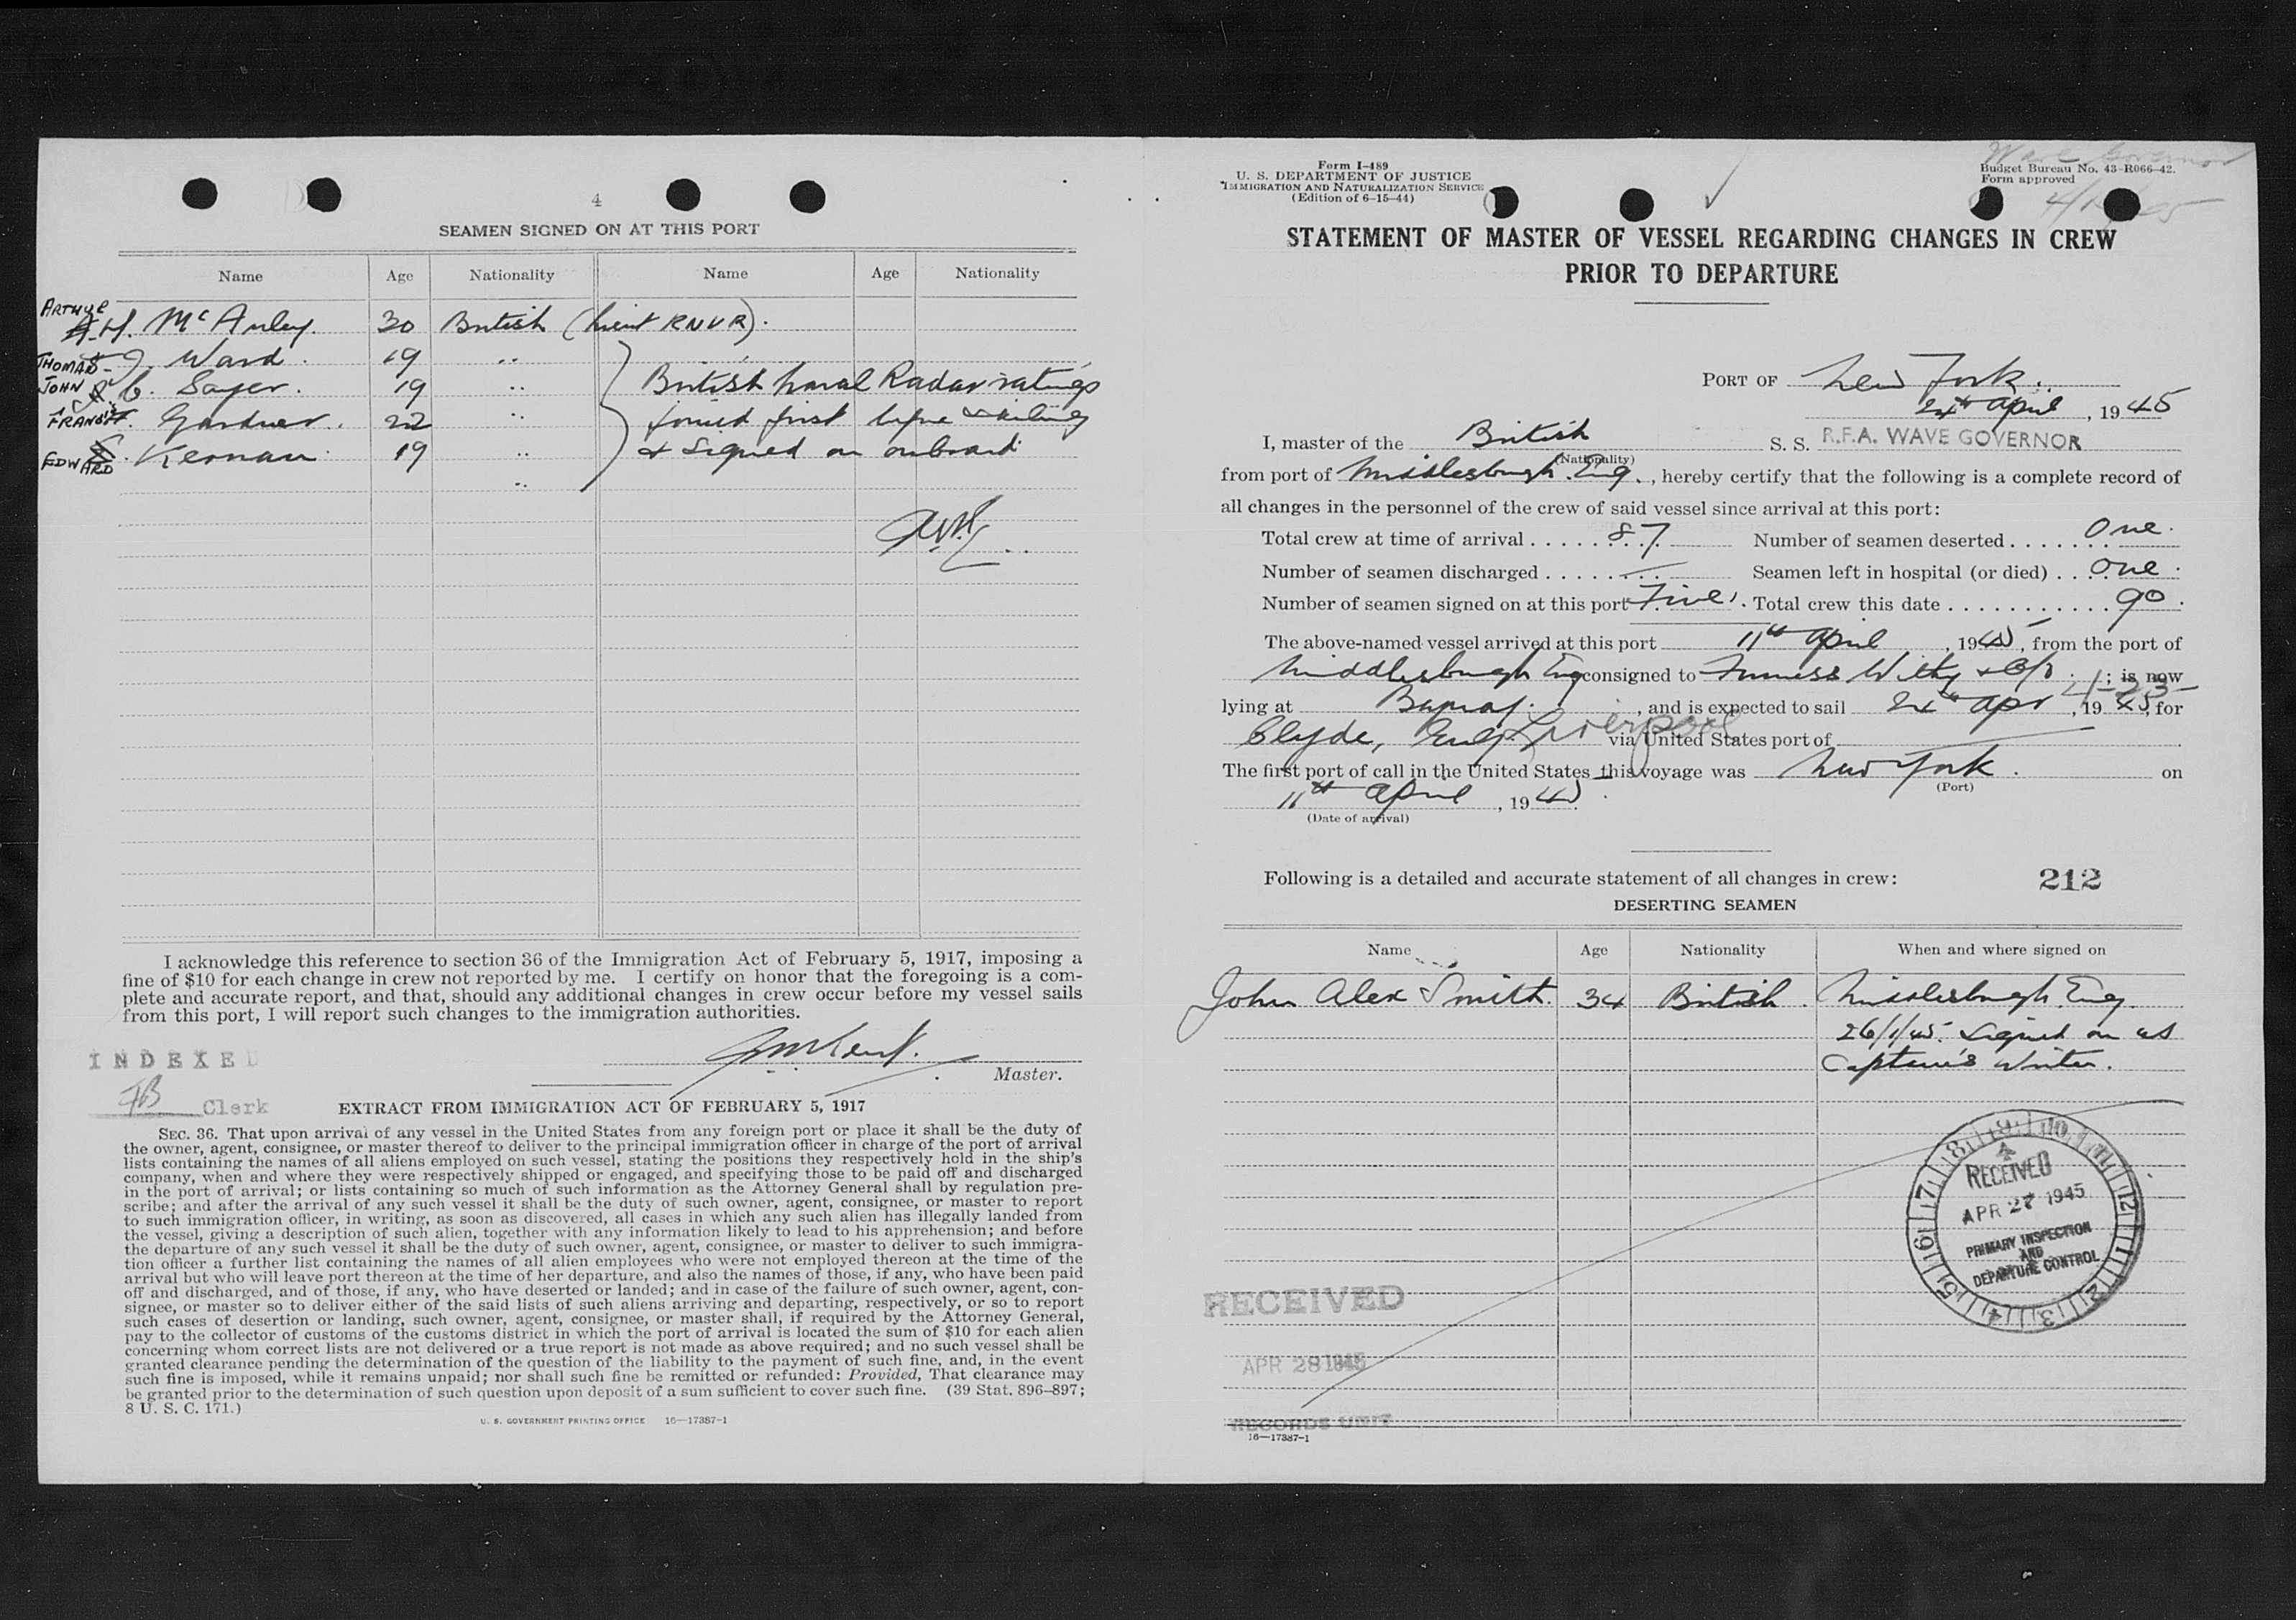 4
SEAMEN SIGNED ON AT THIS PORT
Name Age Nationality Name Age Nationality
ARTHUR H. McAuley. 30 British (Lieut RNVR).
THOMAS J. Ward. 19 "
JOHN C. Sayer. 19 " British Naval Radar ratings
FRANCIS. Gardner. 22 " joined just before sailing
EDWARD Kernan 19 " & signed on onboard
"
I acknowledge this reference to section 36 of the Immigration Act of February 5, 1917, imposing a
fine of $10 for each change in crew not reported by me. I certify on honor that the foregoing is a com-
plete and accurate report, and that, should any additional changes in crew occur before my vessel sails
from this port, I will report such changes to the immigration authorities.
Master.
INDEXED
JB Clerk
EXTRACT FROM IMMIGRATION ACT OF FEBRUARY 5, 1917
SEC. 36. That upon arrival of any vessel in the United States from any foreign port or place it shall be the duty of
the owner, agent, consignee, or master thereof to deliver to the principal immigration officer in charge of the port of arrival
lists containing the names of all aliens employed on such vessel, stating the positions they respectively hold in the ship's
company, when and where they were respectively shipped or engaged, and specifying those to be paid off and discharged
in the port of arrival; or lists containing so much of such information as the Attorney General shall by regulation pre-
scribe; and after the arrival of any such vessel it shall be the duty of such owner, agent, consignee, or master to report
to such immigration officer, in writing, as soon as discovered, all cases in which any such alien has illegally landed from
the vessel, giving a description of such alien, together with any information likely to lead to his apprehension; and before
the departure of any such vessel it shall be the duty of such owner, agent, consignee, or master to deliver to such immigra-
tion officer a further list containing the names of all alien employees who were not employed thereon at the time of the
arrival but who will leave port thereon at the time of her departure, and also the names of those, if any, who have been paid
off and discharged, and of those, if any, who have deserted or landed; and in case of the failure of such owner, agent, con-
signee, or master so to deliver either of the said lists of such aliens arriving and departing, respectively, or so to report
such cases of desertion or landing, such owner, agent, consignee, or master shall, if required by the Attorney General,
pay to the collector of customs of the customs district in which the port of arrival is located the sum of $10 for each alien
concerning whom correct lists are not delivered or a true report is not made as above required; and no such vessel shall be
granted clearance pending the determination of the question of the liability to the payment of such fine, and, in the event
such fine is imposed, while it remains unpaid; nor shall such fine be remitted or refunded: Provided, That clearance may
be granted prior to the determination of such question upon deposit of a sum sufficient to cover such fine. (39 Stat. 896–897;
8 U. S. C. 171.)
U. S. GOVERNMENT PRINTING OFFICE 16—17387-1
Form I-489
U. S. DEPARTMENT OF JUSTICE
IMMIGRATION AND NATURALIZATION SERVICE
(Edition of 6-15-44)
Wave Governor
Budget Bureau No. 43-R066-42.
Form approved
STATEMENT OF MASTER OF VESSEL REGARDING CHANGES IN CREW
PRIOR TO DEPARTURE
PORT OF New York.
24th April, 1945
I, master of the British S. S. R.F.A. WAVE GOVERNOR
(Nationality)
from port of Middlesbrough. Eng., hereby certify that the following is a complete record of
all changes in the personnel of the crew of said vessel since arrival at this port:
Total crew at time of arrival 87 Number of seamen deserted One.
Number of seamen discharged — Seamen left in hospital (or died) One.
Number of seamen signed on at this port Five. Total crew this date 90.
The above-named vessel arrived at this port 11th April, 1945, from the port of
Middlesbrough Eng consigned to Furness Withy & Co; is now
4-23-
lying at , and is expected to sail 24th Apr, 1945, for
Clyde, Eng. Liverpool via United States port of
The first port of call in the United States this voyage was New York. on
(Port)
11th April, 1945.
(Date of arrival)
Following is a detailed and accurate statement of all changes in crew: 212
DESERTING SEAMEN
Name Age Nationality When and where signed on
John Alex Smith. 34 British. Middlesbrough. Eng.
26/1/45. Signed on as
Captain's Writer.
RECEIVED
APR 27 1945
PRIMARY INSPECTION
AND
DEPARTURE CONTROL
RECEIVED
APR 28 1945
RECORDS UNIT
16—17387-1